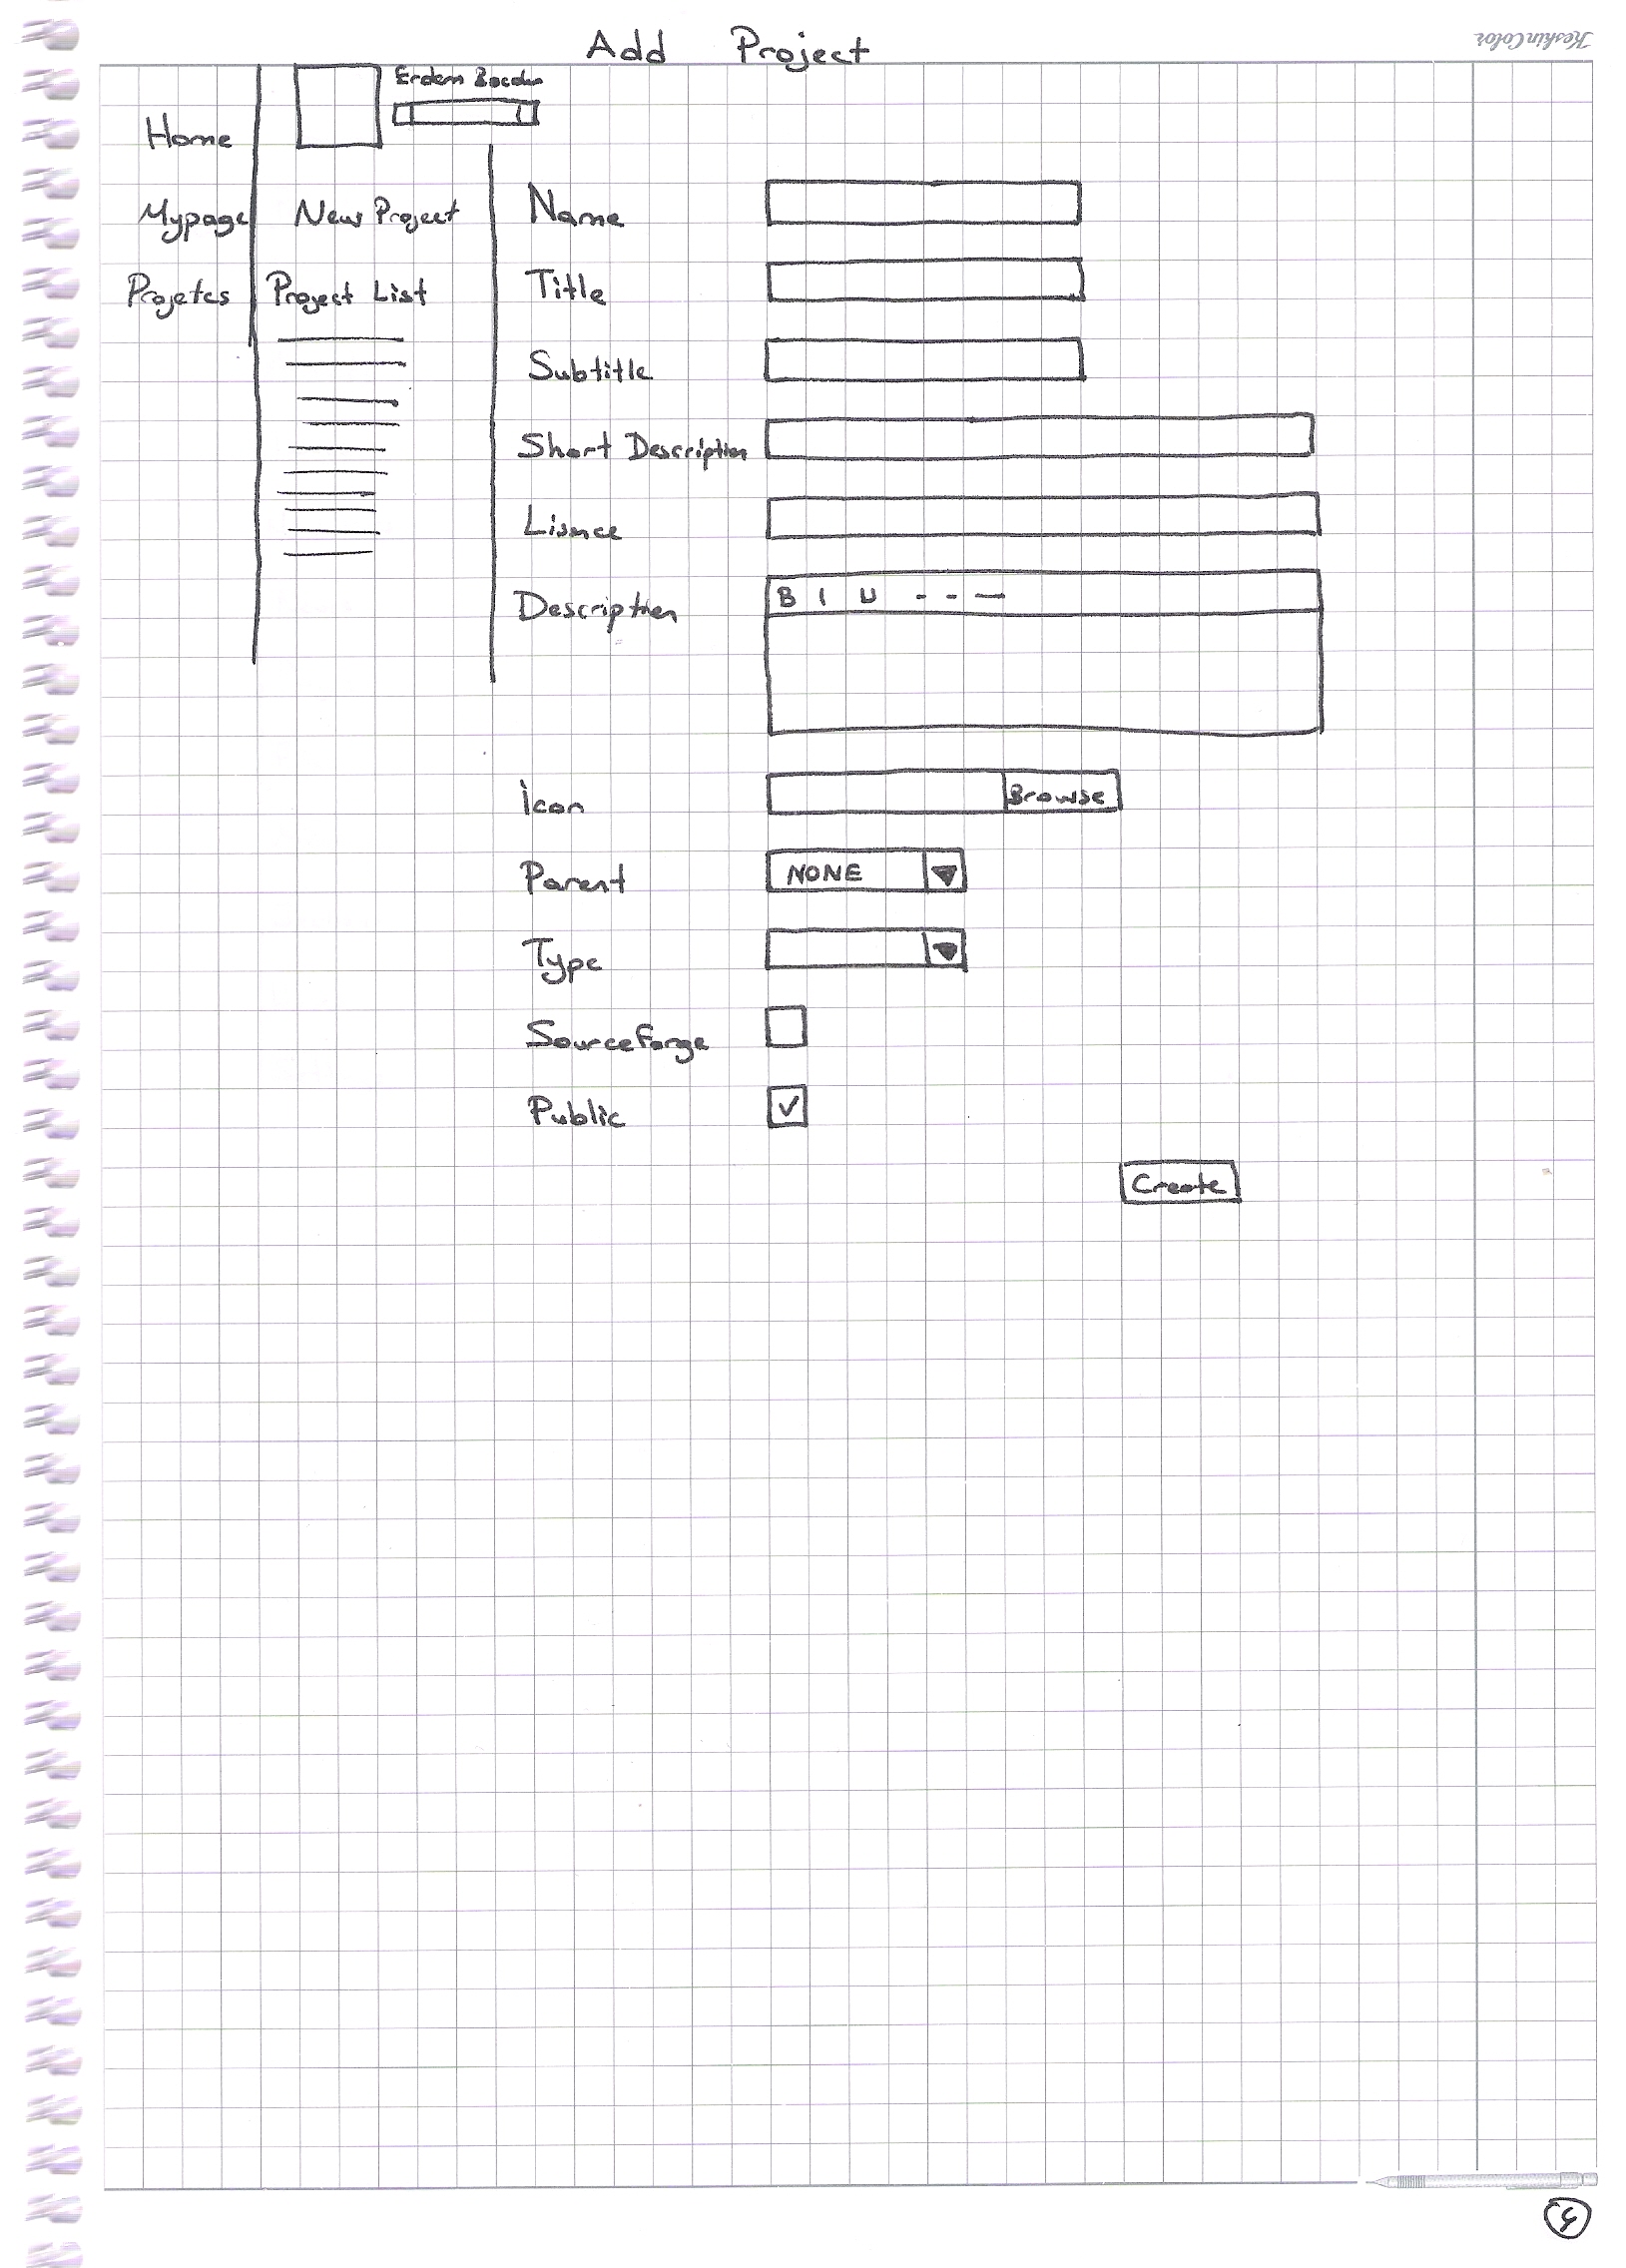 Add Project
KeskinColor
Erdem
Home
Mypage
New Project
Projetcs
Project List
Name
Title
Subtitle
Short Description
Lisnce
Description
B I U - - —
İcon
Browse
Parent
NONE
Type
SourceForge
Public
Create